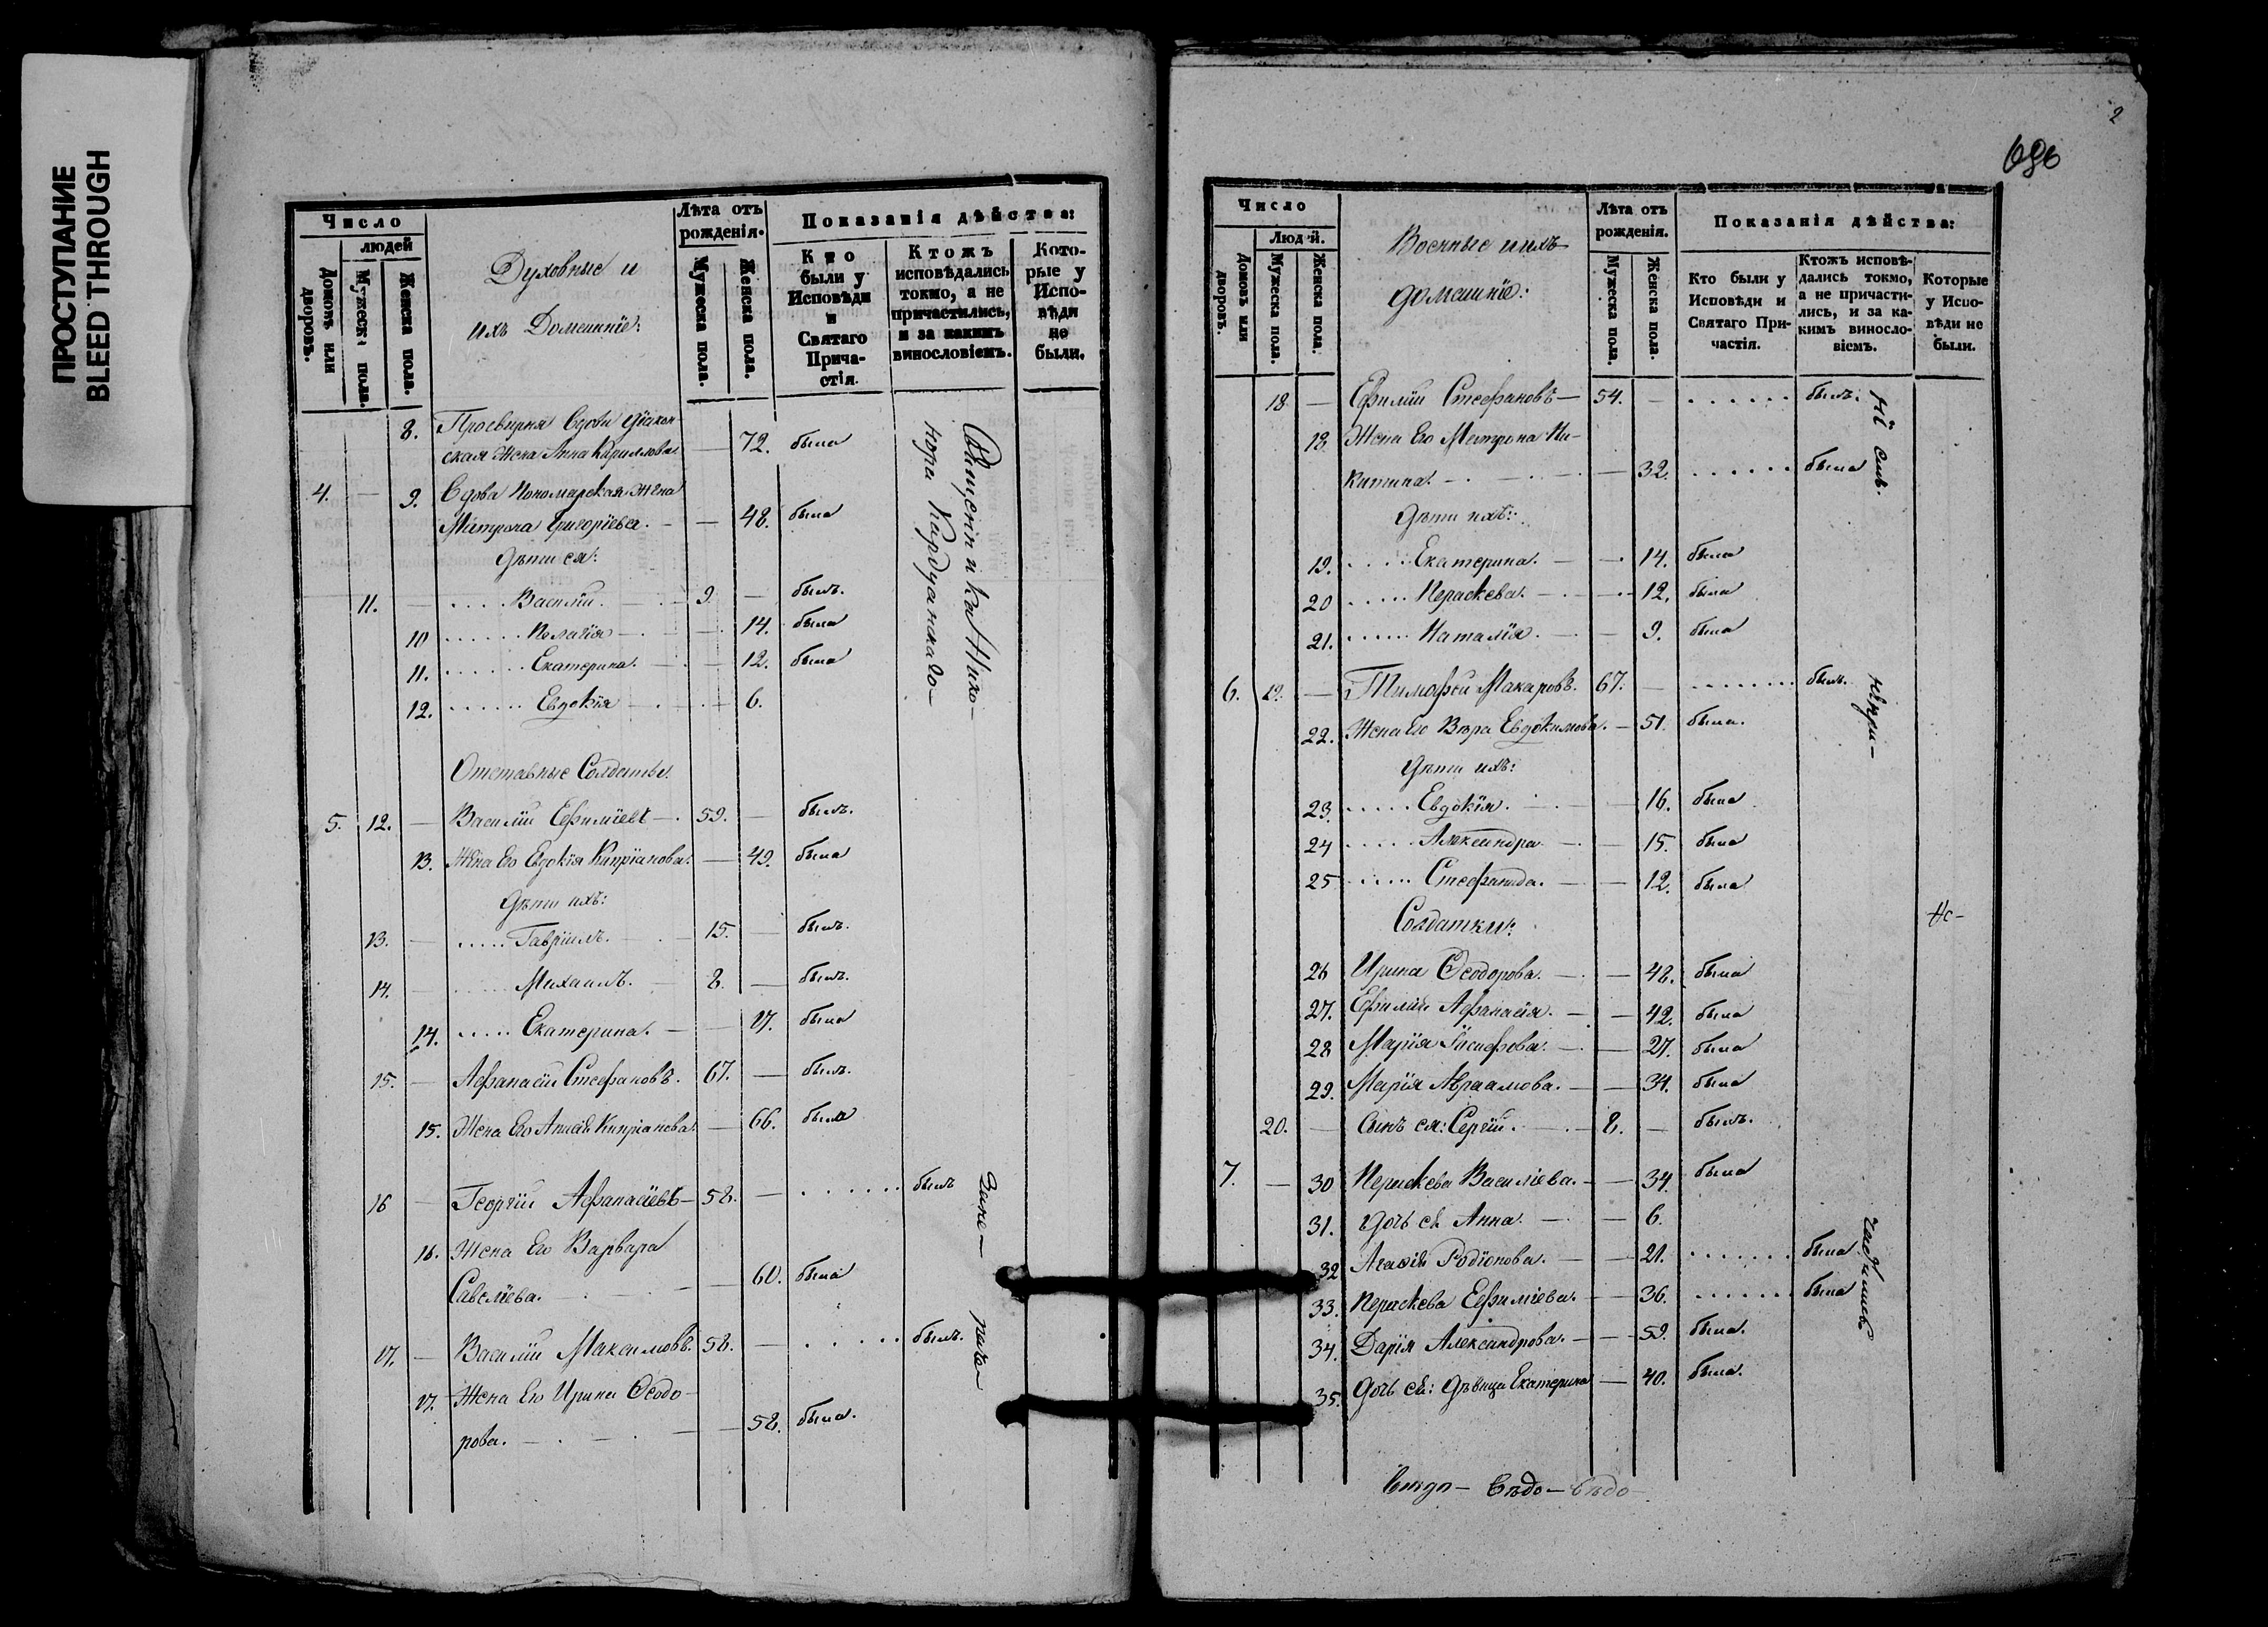 ПРОСТУПАНИЕ
BLEED THROUGH
Число
людей
Домовъ или дворовъ.
Мужеска пола.
Женска пола.
Духовные и
ихъ Домашніе:
Лѣта отъ рожденія.
Мужеска пола.
Женска пола.
Показанія дѣйства:
Кто были у Исповѣди и Святаго Причастія.
Ктожъ исповѣдались токмо, а не причастились, и за какимъ винословіемъ.
Которые у Исповѣди не были.
8. Просвирня Вдова Діакон
ская Жена Анна Кириллова. — 72. была
4. — 9. Вдова Пономарская Жена
Матрона Григоріева. — — 48. была
Дѣти ея:
11. — .... Василій. — 9. — былъ.
10 ...... Пелагія — — 14. была
11. ...... Екатерина. — — 12. была
12. ...... Евдокія — — 6.
Отставные Солдаты
5. 12. — Василій Ефиміевъ — 59. — былъ.
13. Жена Его Евдокія Кипріанова. — 49. была
Дѣти ихъ:
13. — ..... Гавріилъ. — 15. — былъ.
14. — ..... Михаилъ. — 8. — былъ.
14. ..... Екатерина. — — 17. была
15. — Афанасій Стефановъ. 67. — былъ.
15. Жена Его Кипріанова. — 66. была
16 — Георгій Афанасіевъ — 58. — ...... былъ
16. Жена Его Варвара
Савеліева. — — 60. была
17. — Василій Максимовъ. 58. — ..... былъ.
17. Жена Его Ирина Ѳеодо-
рова. — — — 58. была.
2
696
Число
Людей.
Домовъ или дворовъ.
Мужеска пола.
Женска пола.
Военные и ихъ
домашніе:
Лѣта отъ рожденія.
Мужеска пола.
Женска пола.
Показанія дѣйства:
Кто были у Исповѣди и Святаго Причастія.
Ктожъ исповѣдались токмо, а не причастились, и за какимъ винословіемъ.
Которые у Исповѣди не были.
18 — Ефимій Стефановъ — 54. — ...... былъ.
18 Жена Его Матрона Ни-
китина. — — 32. ...... была
Дѣти ихъ:
19. .... Екатерина. — — 14. была
20 ..... Параскева. — — 12. была
21. ...... Наталія. — — 9. была
6. 19. — Тимофей Макаровъ. 67. — ....... былъ.
22. Жена Его Вѣра Евдокимова. — 51. была.
Дѣти ихъ:
23. ..... Евдокія. — — 16. была
24 ..... Александра. — — 15. была
25 ..... Стефанида. — — 12. была
Солдатки:
26 Ирина Ѳеодорова. — — 48. была
27. Афанасія. — — 42. была
28 Марія Іосифова. — — 27. была
29. Марія Авраамова. — — 34. была
20. — Сынъ ея: Сергій. — 8. — былъ.
7. — 30 Параскева Василіева. — — 34. была
31. Дочь ея Анна. — — 6.
32 Агафія Родіонова. — — 21. ....... была
33. Параскева Ефиміева. — — 36. ....... была
34. Дарія Александрова. — — 59. была.
35. Дочь ея: Дѣвица Екатерина — 40. была.